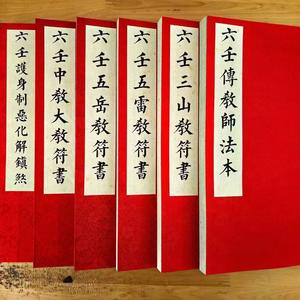 六壬傳教師法本
六壬三山教符書
六壬五雷教符書
六壬五岳教符書
六壬中教大教符書
六壬護身制惡化解鎮煞